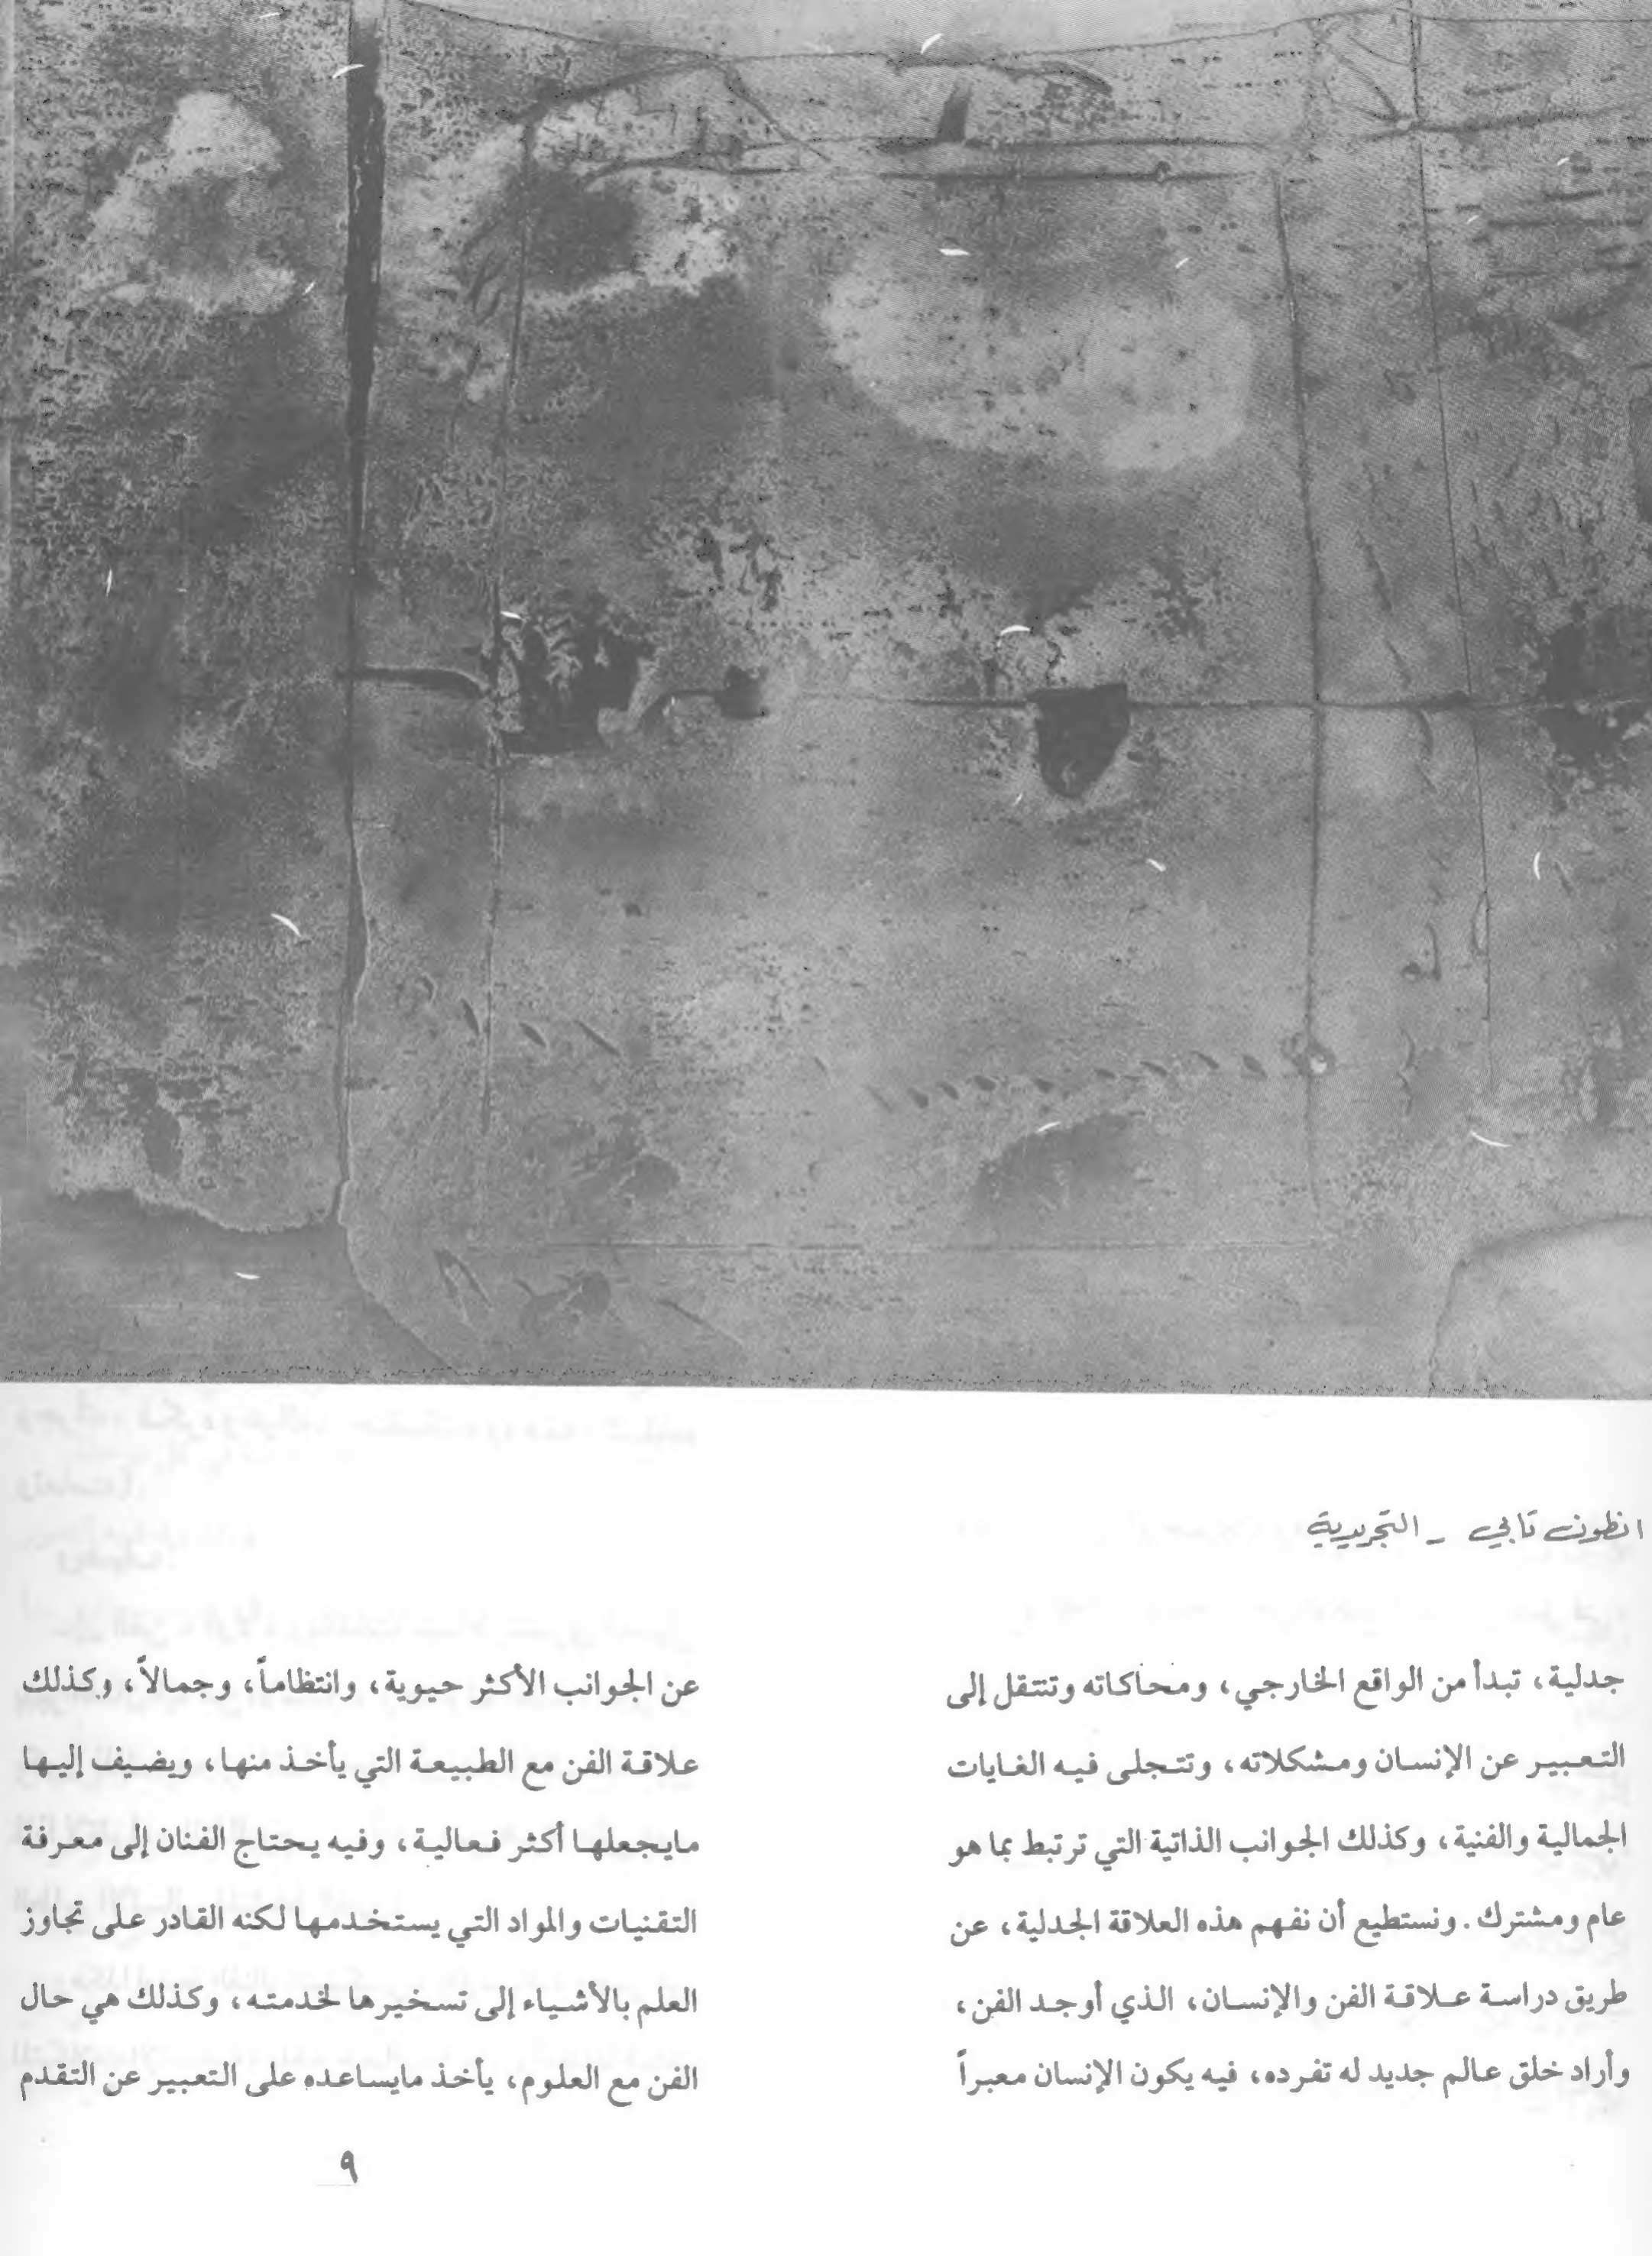 انطون تابي - التجريدية
جدلية، تبدأ من الواقع الخارجي، ومحاكاته وتنتقل إلى
التعبير عن الإنسان ومشكلاته، وتتجلى فيه الغايات
الجمالية والفنية، وكذلك الجوانب الذاتية التي ترتبط بما هو
عام ومشترك. ونستطيع أن نفهم هذه العلاقة الجدلية، عن
طريق دراسة علاقة الفن والإنسان، الذي أوجد الفن،
وأراد خلق عالم جديد له تفرده، فيه يكون الإنسان معبراً
عن الجوانب الأكثر حيوية، وانتظاماً، وجمالاً، وكذلك
علاقة الفن مع الطبيعة التي يأخذ منها، ويضيف إليها
مايجعلها أكثر فعالية، وفيه يحتاج الفنان إلى معرفة
التقنيات والمواد التي يستخدمها لكنه القادر على تجاوز
العلم بالأشياء إلى تسخيرها لخدمته، وكذلك هي حال
الفن مع العلوم، يأخذ مايساعده على التعبير عن التقدم
٩